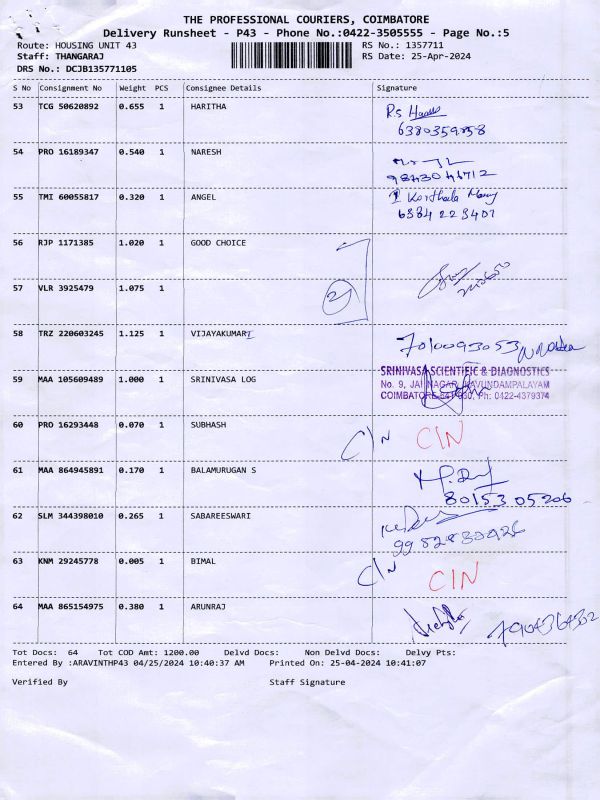 THE PROFESSIONAL COURIERS, COIMBATORE
Delivery Runsheet - P43 - Phone No.:0422-3505555 - Page No.:5
Route: HOUSING UNIT 43 RS No.: 1357711
Staff: THANGARAJ RS Date: 25-Apr-2024
DRS No.: DCJB135771105
S No Consignment No Weight PCS Consignee Details Signature
53 TCG 50620892 0.655 1 HARITHA R.S
54 PRO 16189347 0.540 1 NARESH
55 TMI 60055817 0.320 1 ANGEL
6384223401
56 RJP 1171385 1.020 1 GOOD CHOICE
57 VLR 3925479 1.075 1 2
58 TRZ 220603245 1.125 1 VIJAYAKUMARI 7010093053
59 MAA 105609489 1.000 1 SRINIVASA LOG
SRINIVASA SCIENTIFIC & DIAGNOSTICS
No. 9, JAI NAGAR, KAVUNDAMPALAYAM
COIMBATORE-641 030, Ph: 0422-4379374
60 PRO 16293448 0.070 1 SUBHASH C/N C/N
61 MAA 864945891 0.170 1 BALAMURUGAN S
8015305206
62 SLM 344398010 0.265 1 SABAREESWARI
63 KNM 29245778 0.005 1 BIMAL C/N C/N
64 MAA 865154975 0.380 1 ARUNRAJ
Tot Docs: 64 Tot COD Amt: 1200.00 Delvd Docs: Non Delvd Docs: Delvy Pts:
Entered By :ARAVINTHP43 04/25/2024 10:40:37 AM Printed On: 25-04-2024 10:41:07
Verified By Staff Signature